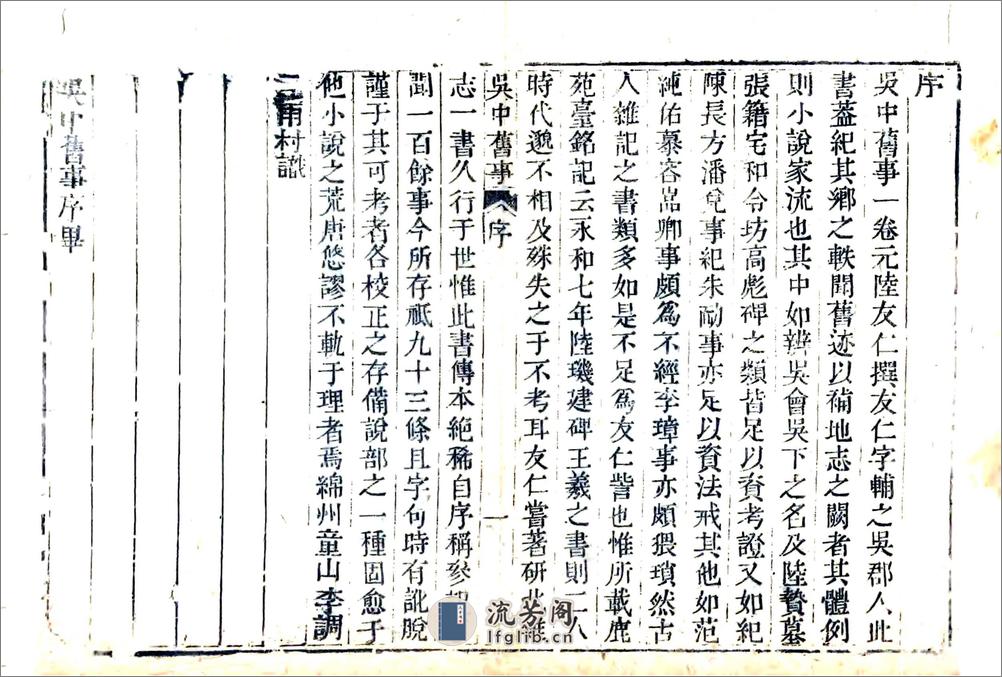 序
吳中舊事一卷元陸友仁撰友仁字輔之吳郡人此
書蓋紀其鄉之軼聞舊迹以補地志之闕者其體例
則小說家流也其中如辨吳會吳下之名及陸贄墓
張籍宅和令坊高彪碑之類皆足以資考證又如紀
陳長方潘兌事紀朱勔事亦足以資法戒其他如范
純佑慕容嵓卿事頗爲不經李璋事亦頗猥瑣然古
人雜記之書類多如是不足爲友仁訾也惟所載鹿
苑臺銘記云永和七年陸璣建碑王羲之書則二人
時代邈不相及殊失之于不考耳友仁嘗著研北雜
吳中舊事 序 一
志一書久行于世惟此書傳本絶稀自序稱參
聞一百餘事今所存祇九十三條且字句時有訛脫
謹于其可考者各校正之存備說部之一種固愈于
他小說之荒唐悠謬不軌于理者焉綿州童山李調
元雨村識
吳中舊事序畢
流芳阁
lfglib.cn